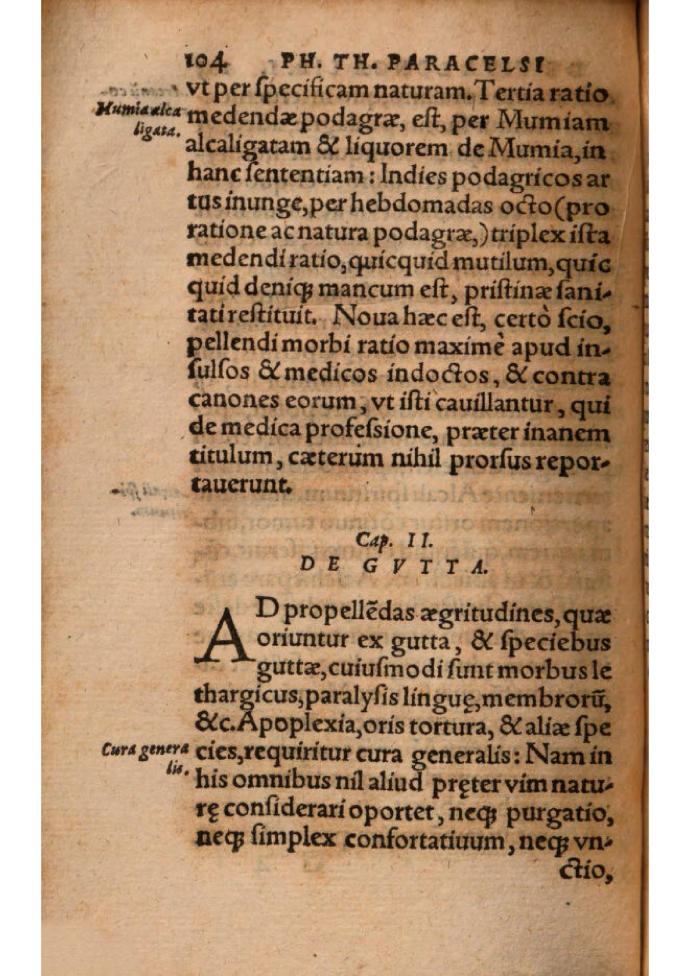 104 PH. TH. PARACELSI
vt per ſpecificam naturam. Tertia ratio
Mumia alca
ligata.
medendæ podagræ, eſt, per Mumiam
alcaligatam & liquorem de Mumia, in
hanc ſententiam: Indies podagricos ar
tus inunge, per hebdomadas octo (pro
ratione ac natura podagræ,) triplex iſta
medendi ratio, quicquid mutilum, quic
quid deniqꝫ mancum eſt, priſtinæ ſani-
tati reſtituit. Noua hæc eſt, certò ſcio,
pellendi morbi ratio maximè apud in-
ſulſos & medicos indoctos, & contra
canones eorum, vt iſti cauillantur, qui
de medica profeſsione, præter inanem
titulum, cæterùm nihil prorſus repor-
tauerunt.
Cap. II.
DE GVTTA.
AD propellēdas ægritudines, quæ
oriuntur ex gutta, & ſpeciebus
guttæ, cuiuſmodi ſunt morbus le
thargicus, paralyſis linguę, membrorū,
&c. Apoplexia, oris tortura, & aliæ ſpe
Cura genera
lis.
cies, requiritur cura generalis: Nam in
his omnibus nil aliud pręter vim natu-
rę conſiderari oportet, neqꝫ purgatio,
neqꝫ ſimplex confortatiuum, neqꝫ vn-
ctio,